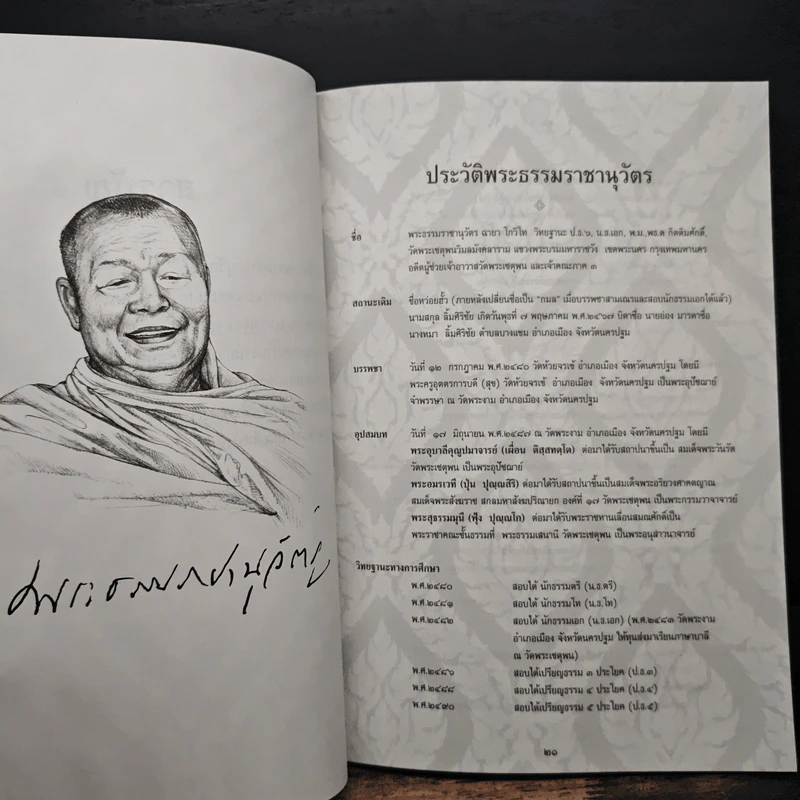 พระธรรมราชานุวัตร
ประวัติพระธรรมราชานุวัตร
ชื่อ พระธรรมราชานุวัตร ฉายา โกวิโท วิทยฐานะ ป.ธ.๖, น.ธ.เอก, พ.ม.,พธ.ด กิตติมศักดิ์,
วัดพระเชตุพนวิมลมังคลาราม แขวงพระบรมมหาราชวัง เขตพระนคร กรุงเทพมหานคร
อดีตผู้ช่วยเจ้าอาวาสวัดพระเชตุพน และเจ้าคณะภาค ๓
สถานะเดิม ชื่อหว่อยฮั้ว (ภายหลังเปลี่ยนชื่อเป็น "กมล" เมื่อบรรพชาสามเณรและสอบนักธรรมเอกได้แล้ว)
นามสกุล ลิ้มศิริชัย เกิดวันพุธที่ ๗ พฤษภาคม พ.ศ.๒๔๖๗ บิดาชื่อ นายฮ่อง มารดาชื่อ
นางหมา ลิ้มศิริชัย ตำบลบางแขม อำเภอเมือง จังหวัดนครปฐม
บรรพชา วันที่ ๑๒ กรกฎาคม พ.ศ.๒๔๘๐ วัดห้วยจรเข้ อำเภอเมือง จังหวัดนครปฐม โดยมี
พระครูอุตตรการบดี (สุข) วัดห้วยจรเข้ อำเภอเมือง จังหวัดนครปฐม เป็นพระอุปัชฌาย์
จำพรรษา ณ วัดพระงาม อำเภอเมือง จังหวัดนครปฐม
อุปสมบท วันที่ ๑๗ มิถุนายน พ.ศ.๒๔๘๗ ณ วัดพระงาม อำเภอเมือง จังหวัดนครปฐม โดยมี
พระอุบาลีคุณูปมาจารย์ (เผื่อน ติสฺสทตฺโต) ต่อมาได้รับสถาปนาขึ้นเป็น สมเด็จพระวันรัต
วัดพระเชตุพน เป็นพระอุปัชฌาย์
พระอมรเวที (ปุ่น ปุณฺณสิริ) ต่อมาได้รับสถาปนาขึ้นเป็นสมเด็จพระอริยวงศาคตญาณ
สมเด็จพระสังฆราช สกลมหาสังฆปริณายก องค์ที่ ๑๗ วัดพระเชตุพน เป็นพระกรรมวาจาจารย์
พระสุธรรมมุนี (ฟุ้ง ปุณฺณโก) ต่อมาได้รับพระราชทานเลื่อนสมณศักดิ์เป็น
พระราชาคณะชั้นธรรมที่ พระธรรมเสนานี วัดพระเชตุพน เป็นพระอนุสาวนาจารย์
วิทยฐานะทางการศึกษา
พ.ศ.๒๔๘๐ สอบได้ นักธรรมตรี (น.ธ.ตรี)
พ.ศ.๒๔๘๑ สอบได้ นักธรรมโท (น.ธ.โท)
พ.ศ.๒๔๘๒ สอบได้ นักธรรมเอก (น.ธ.เอก) (พ.ศ.๒๔๘๓ วัดพระงาม
อำเภอเมือง จังหวัดนครปฐม ให้ทุนส่งมาเรียนภาษาบาลี
ณ วัดพระเชตุพน)
พ.ศ.๒๔๘๖ สอบได้เปรียญธรรม ๓ ประโยค (ป.ธ.๓)
พ.ศ.๒๔๘๘ สอบได้เปรียญธรรม ๔ ประโยค (ป.ธ.๔)
พ.ศ.๒๔๙๐ สอบได้เปรียญธรรม ๕ ประโยค (ป.ธ.๕)
๒๑